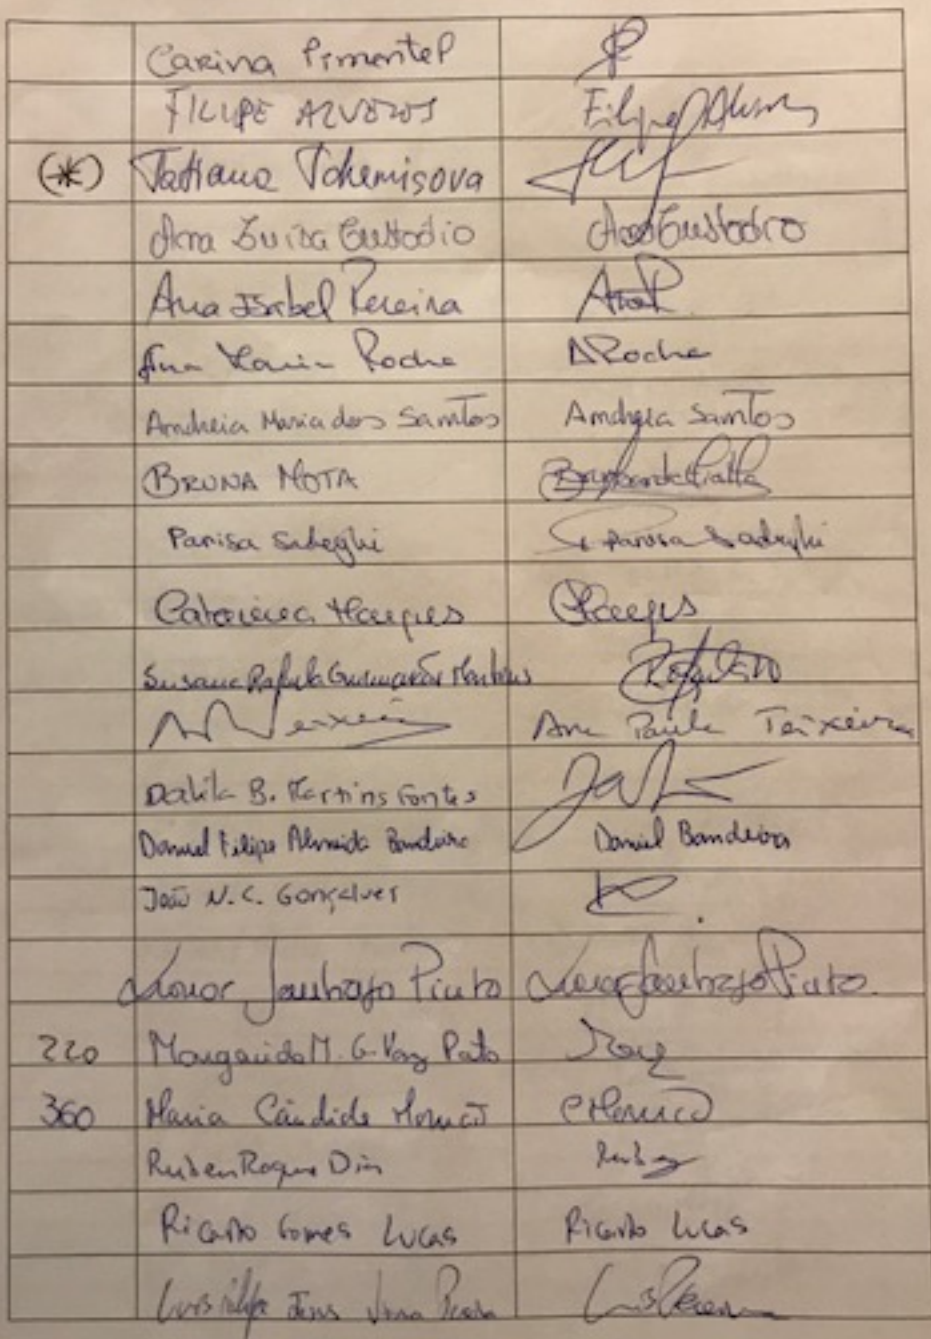 Carina Pimentel
FILIPE ALVELOS Filipe
(*) Tatiana Tchemisova
Ana Luisa Custódio Ana Custodio
Ana Isabel Pereira AnaP
Ana Maria Rocha ARocha
Andreia Maria dos Santos Andreia Santos
BRUNA MOTA
Parisa Sadeghi Parisa Sadeghi
Catarina Marques CMarques
Susana Rafaela Guimarães Martins
Teixeira Ana Paula Teixeira
Dalila B. Martins Fontes
Daniel Filipe Almeida Bandeira Daniel Bandeira
João N. C. Gonçalves
Leonor Pinto Pinto
220 Margarida M. G. Vaz Pato
360 Maria Cândida Mourão CMourão
Ruben Roque Dias
Ricardo Gomes Lucas Ricardo Lucas
Luis Filipe